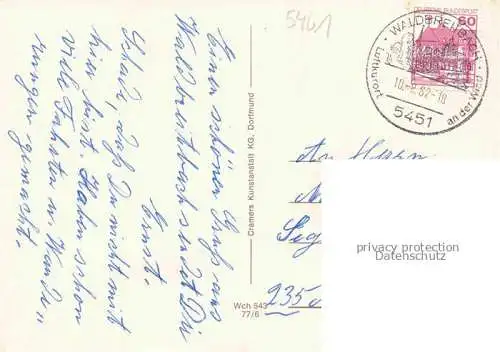 5461
Einen schönen Gruß aus
Waldbreitbach sendet Dir
Ernst.
Schade, daß Du nicht mit
hier bist. Haben schon
viele Fahrten u. Wande-
rungen gemacht.
Cramers Kunstanstalt KG, Dortmund
Wch 543
77/6
DEUTSCHE BUNDESPOST
60
WALDBREITBACH
Luftkurort
an der Wied
10. 82-18
5451
An Herrn
235
privacy protection
Datenschutz